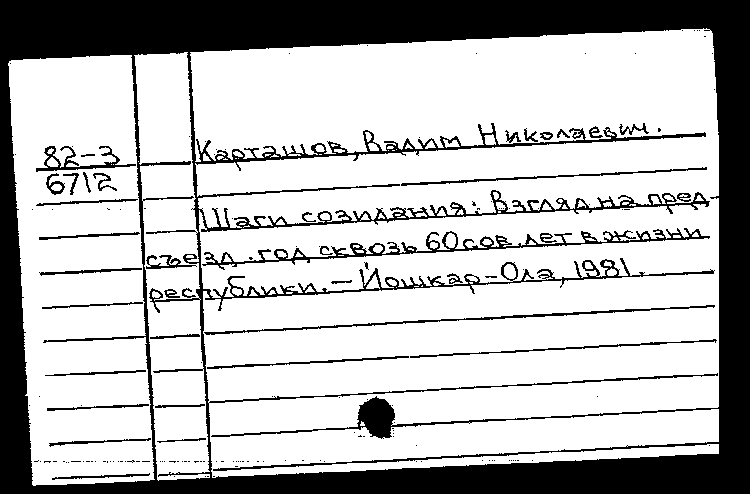 82-3
6712
Карташов, Вадим Николаевич.
Шаги созидания: Взгляд на пред-
съезд. год сквозь 60 сов. лет в жизни
республики. – Йошкар-Ола, 1981.